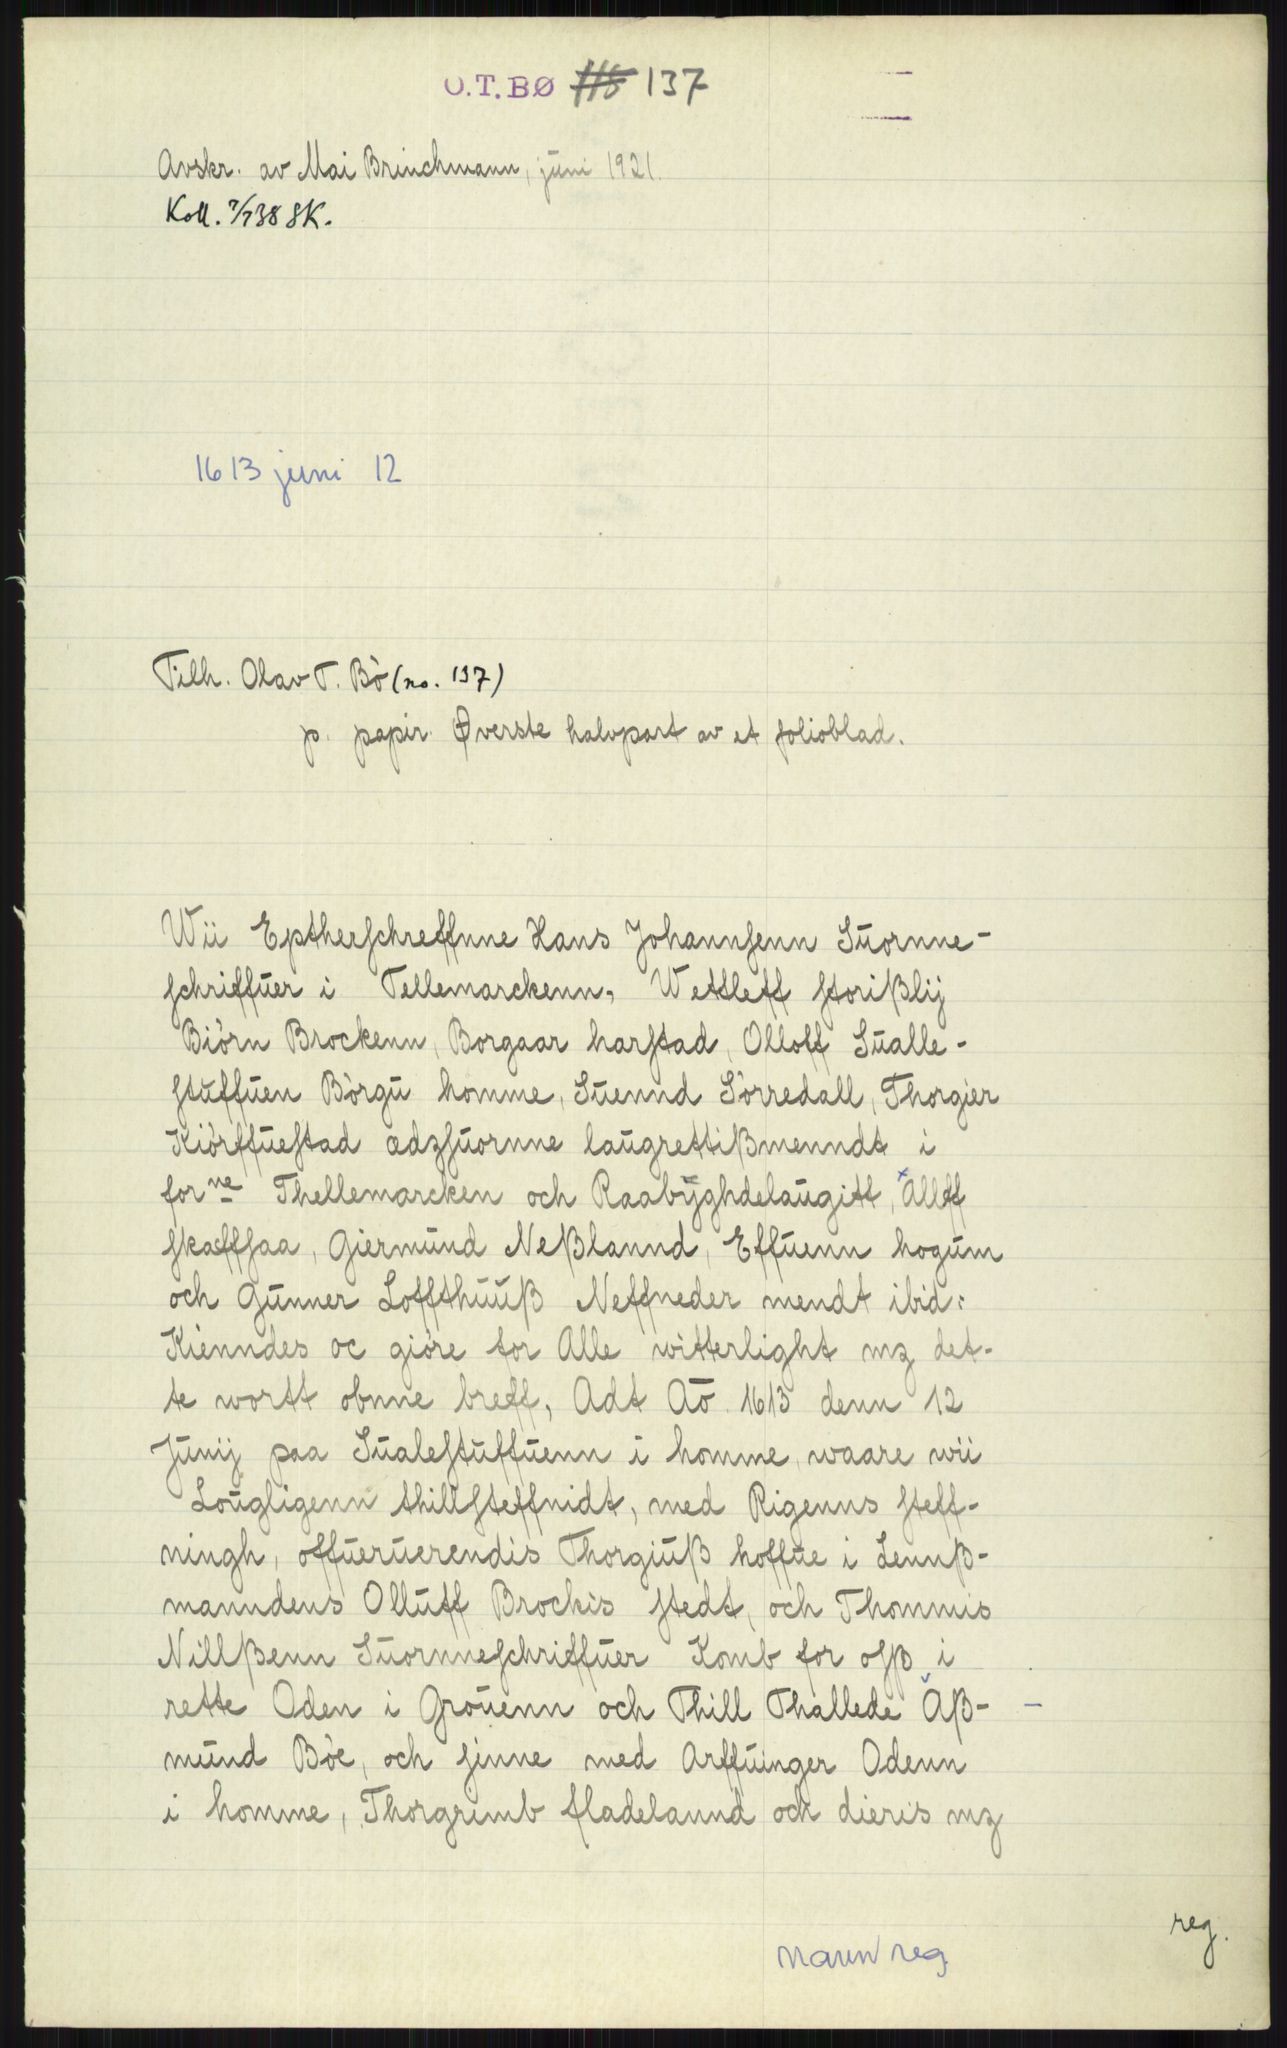 O.T.BØ 118 137
Avskr. av Mai Brinchmann, juni 1921.
Koll. 7/7 38 SK.
1613 juni 12
Tilh. Olav T. Bö (no. 137)
p. papir. Øverste halvpart av et folioblad.
Wii Eptherschreffnne Hans Johannsenn Suornne-
schriffuer i Tellemarckenn, Wettleff storißlij
Biörn Brockenn, Borgaar harstad, Olloff Sualle-
stuffuen Börgu homme, Suennd Sörredall, Thorgier
Kiörffuestad ædzsuornne laugrettißmenndt i
forne Thellemarcken och Raabÿghdelaugitt, Allff
skaffsaa, Giermund Neßlannd, Effuenn hogum
och Gunner Loffthuuß Neffneder mendt ibid:
Kienndes oc giöre for Alle witterlight mz det-
te wortt obnne breff, Adt Ao 1613 denn 12
Junij paa Sualestuffuenn i homme, waare wii
Lougligenn thillsteffnidt, med Rigenns steff-
ningh, offueruerendis Thorgiuß hoffue i Lennß-
manndens Olluff Brockis stedt, och Thommis
Nillßenn Suornneschriffuer Komb for osß i
rette Oden i Grouenn och Thill Thallede Aß-
mund Böe, och sinne med Arffuinger Odenn
i homme, Thorgrimb fladelannd och dieris mz
navn reg.
reg.